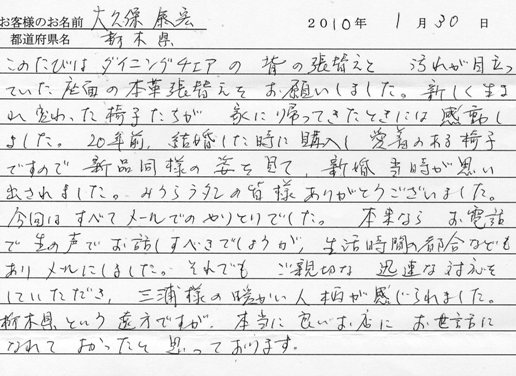 お客様のお名前 大久保康宏 2010年 1月30日
都道府県名 栃木県
このたびはダイニングチェアの背の張替えと 汚れが目立っ
ていた座面の本革張替えをお願いしました。新しく生ま
れ変わった椅子たちが 家に帰ってきたときには感動し
ました。20年前、結婚した時に購入し愛着のある椅子
ですので新品同様の姿を見て、新婚当時が思い
出されました。みうらうタンの皆様ありがとうございました。
今回はすべてメールでのやりとりでした。 本来なら お電話
で生の声でお話しすべきでしょうが、生活時間の都合なども
ありメールにしました。それでも ご親切な 迅速な対応を
していただき、三浦様の暖かい人柄が感じられました。
栃木県という遠方ですが、本当に良いお店に お世話に
なれて よかったと思っております。